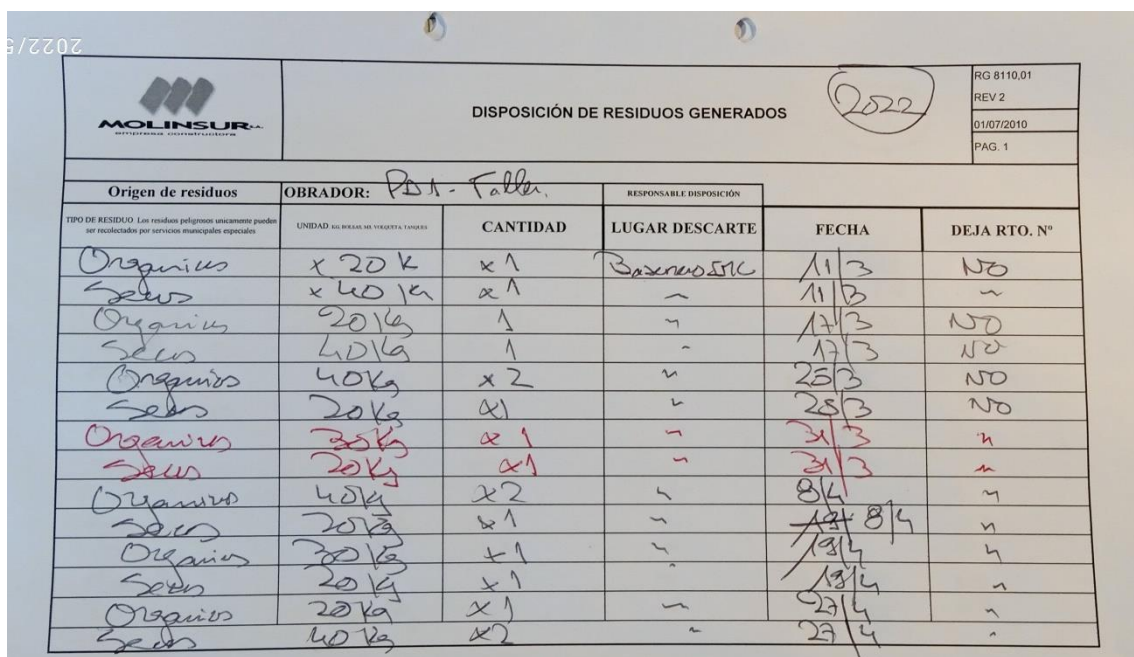 2022/5
MOLINSUR S.A.
empresa constructora
DISPOSICIÓN DE RESIDUOS GENERADOS
2022
RG 8110,01
REV 2
01/07/2010
PAG. 1
Origen de residuos OBRADOR: PD1 - Taller. RESPONSABLE DISPOSICIÓN
TIPO DE RESIDUO Los residuos peligrosos unicamente pueden
ser recolectados por servicios municipales especiales
UNIDAD KG, BOLSAS, M3, VOLQUETA, TANQUES CANTIDAD LUGAR DESCARTE FECHA DEJA RTO. Nº
Organicos x 20 K x 1 11/3 NO
Secos x 40 K x 1 " 11/3 "
Organicos 20 Kg 1 " 17/3 NO
Secos 40 Kg 1 " 17/3 NO
Organicos 40 Kg x 2 " 25/3 NO
Secos 20 Kg x 1 " 25/3 NO
Organicos 30 Kg x 1 " 31/3 "
Secos 20 Kg x 1 " 31/3 "
Organicos 40 Kg x 2 " 8/4 "
Secos 20 Kg x 1 " 8/4 "
Organicos 30 Kg x 1 " 19/4 "
Secos 20 Kg x 1 " 19/4 "
Organicos 20 Kg x 1 " 27/4 "
Secos 40 Kg x 2 " 27/4 "